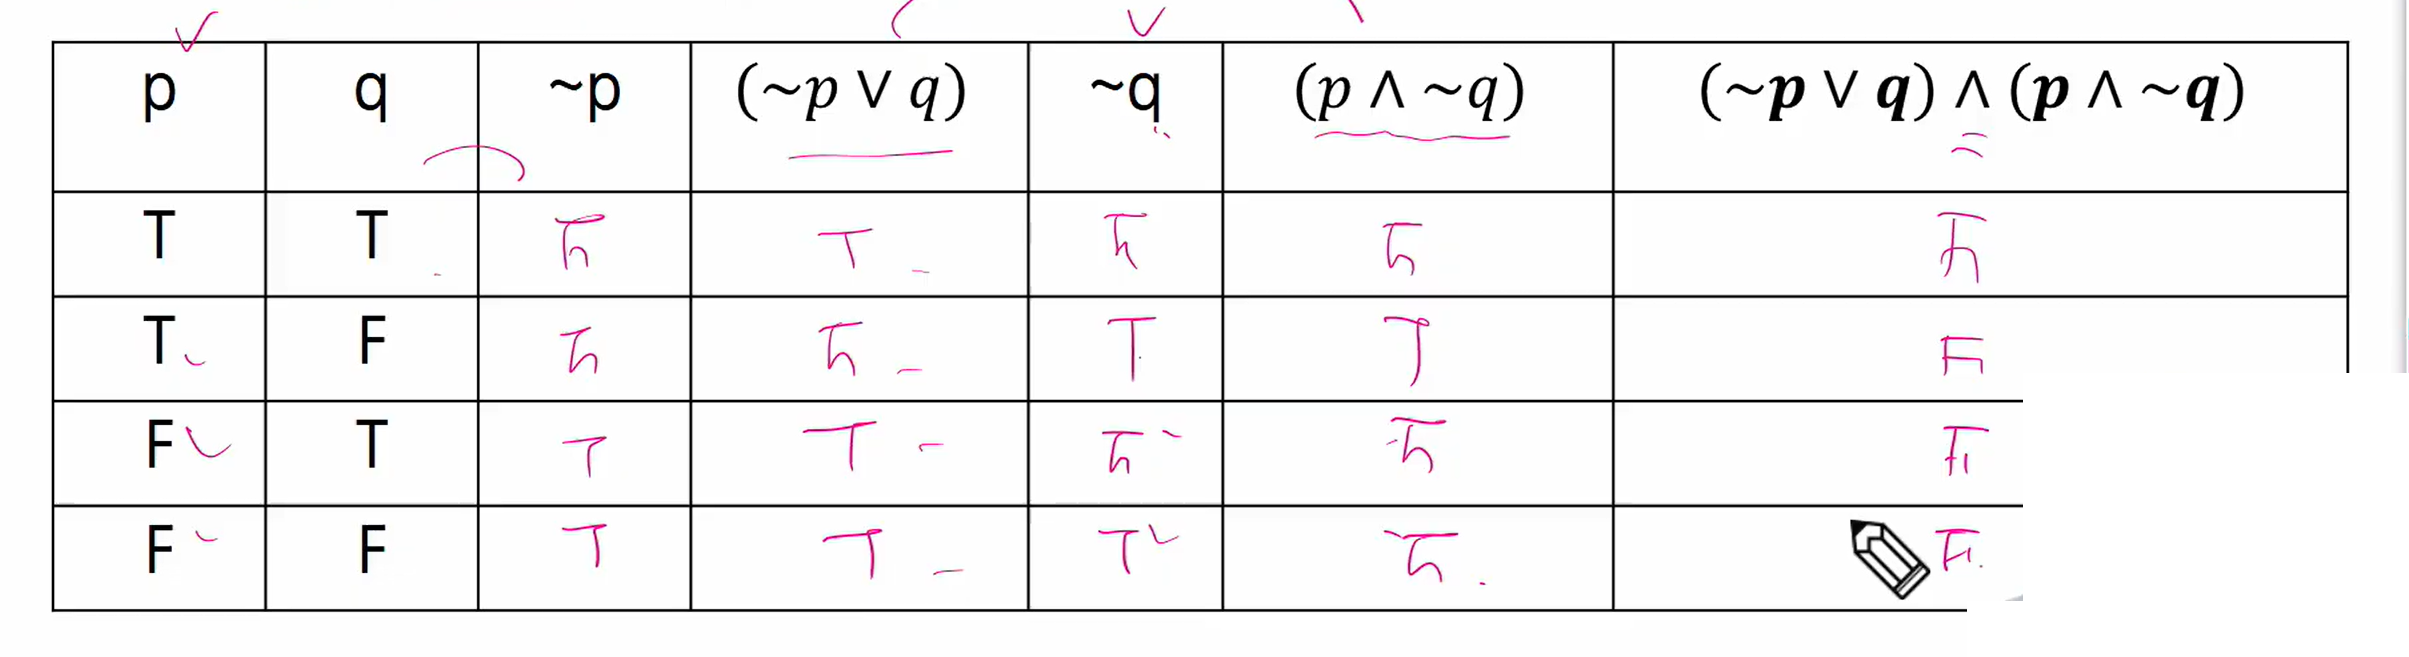 p q ~p (~p ∨ q) ~q (p ∧ ~q) (~p ∨ q) ∧ (p ∧ ~q)
T T F T F F F
T F F F T T F
F T T T F F F
F F T T T F F